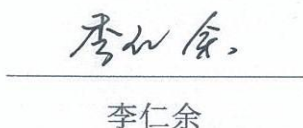 李仁余
李仁余